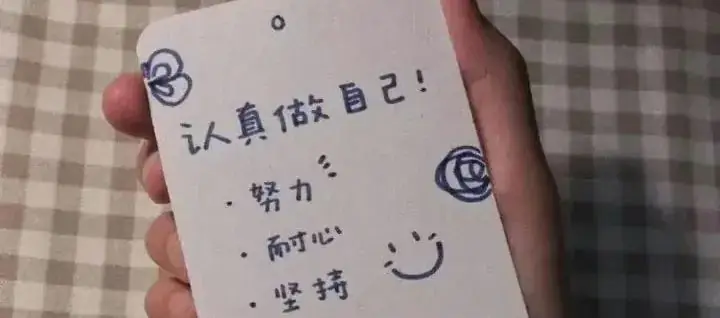 认真做自己!
· 努力
· 耐心
· 坚持